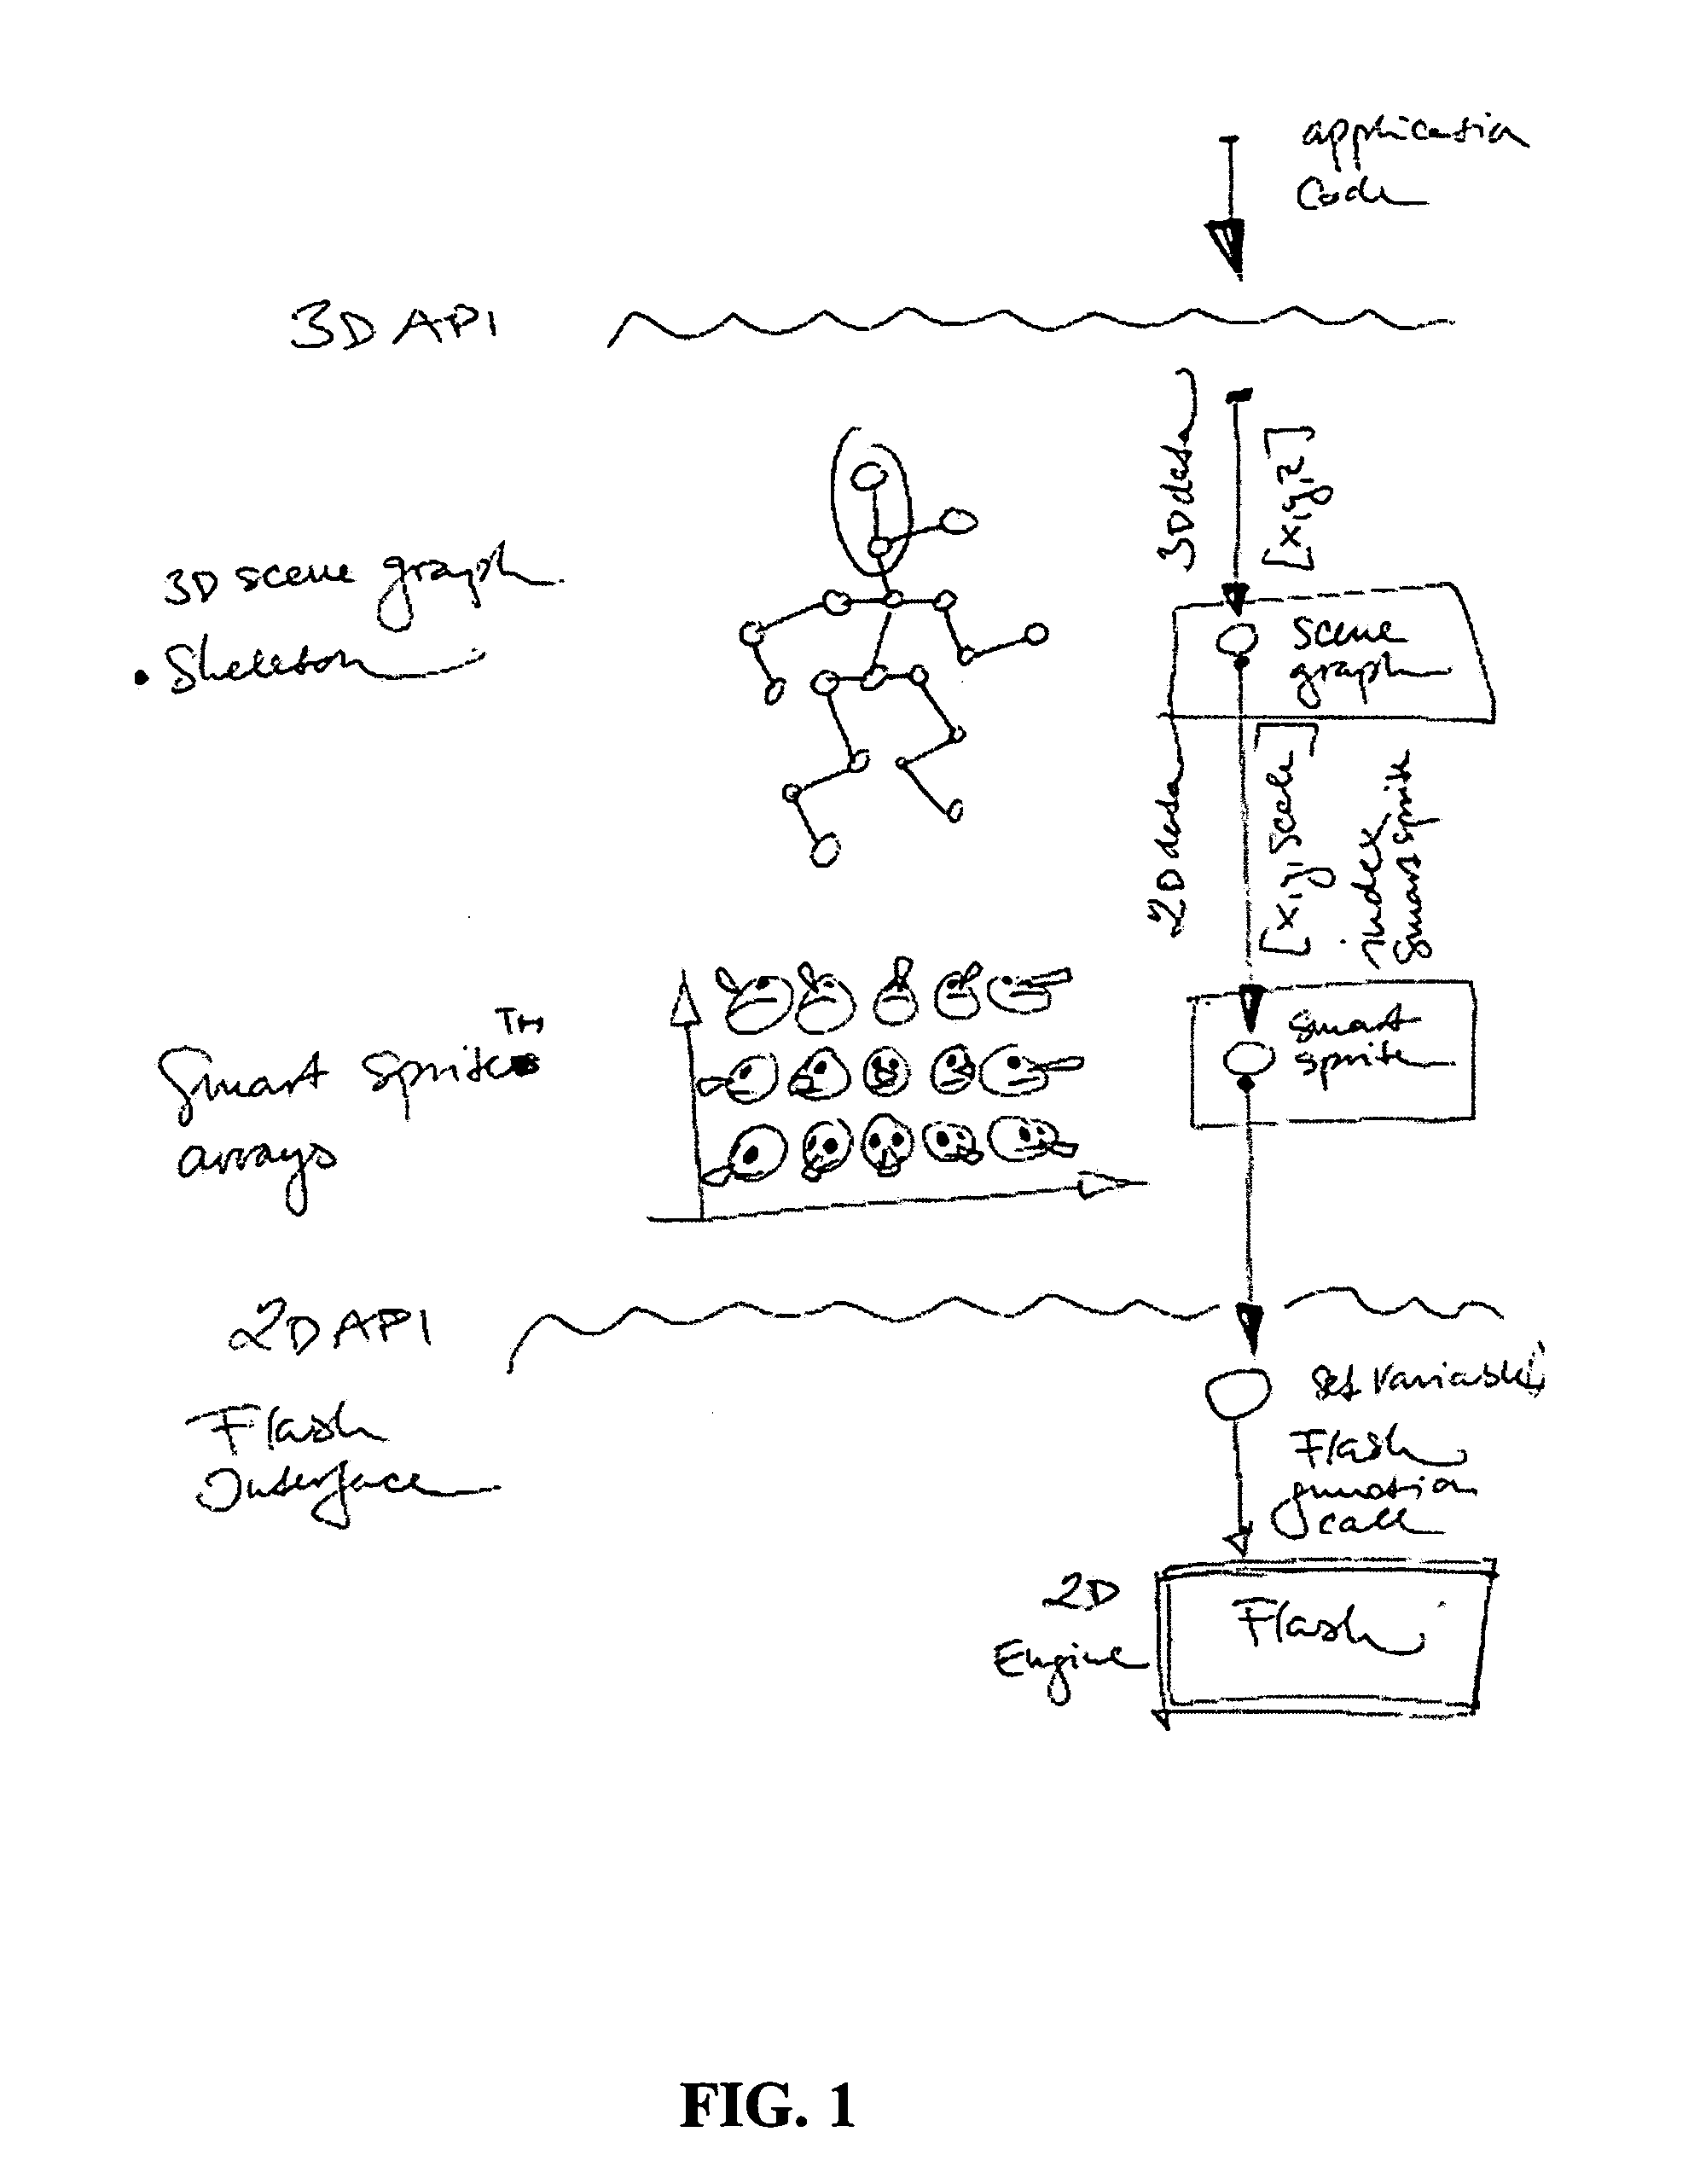 application
Code
3D API
3D data
[x,y,z]
3D scene graph
• Skeleton
scene
graph
2D data
[x,y,scale]
index
smart sprite
Smart Sprites TM
arrays
smart
sprite
2D API
Flash
Interface
set variables
Flash
function
call
2D
Engine
Flash
FIG. 1